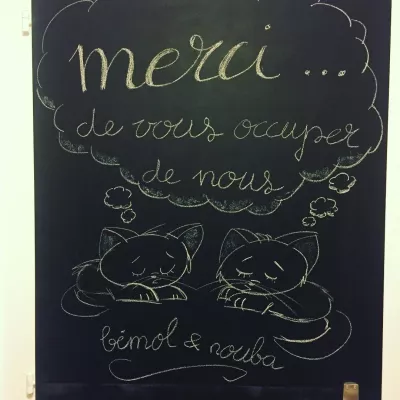 merci...
de vous occuper
de nous
bémol & nouba